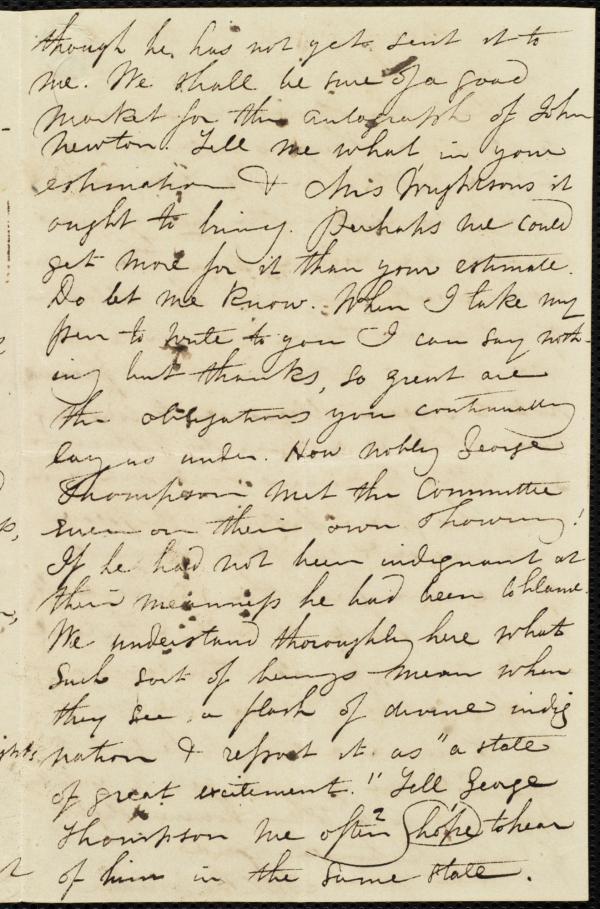 though he has not yet sent it to
me. We shall be sure of a good
market for the autograph of John
Newton. Tell me what in your
estimation & Miss Wrightsons it
ought to bring. Perhaps we could
get more for it than your estimate.
Do let me know. When I take my
pen to write to you I can say noth-
ing but thanks, so great are
the obligations you continually
lay us under. How nobly George
Thompson met the Committee
even on their own showing!
If he had not been indignant at
their meanness he had been to blame.
We understand thoroughly here what
such sort of beings mean when
they see a flash of divine indig
nation & report it as "a state
of great excitement." Tell George
Thompson we often 2 hope to hear
of him in the same state.